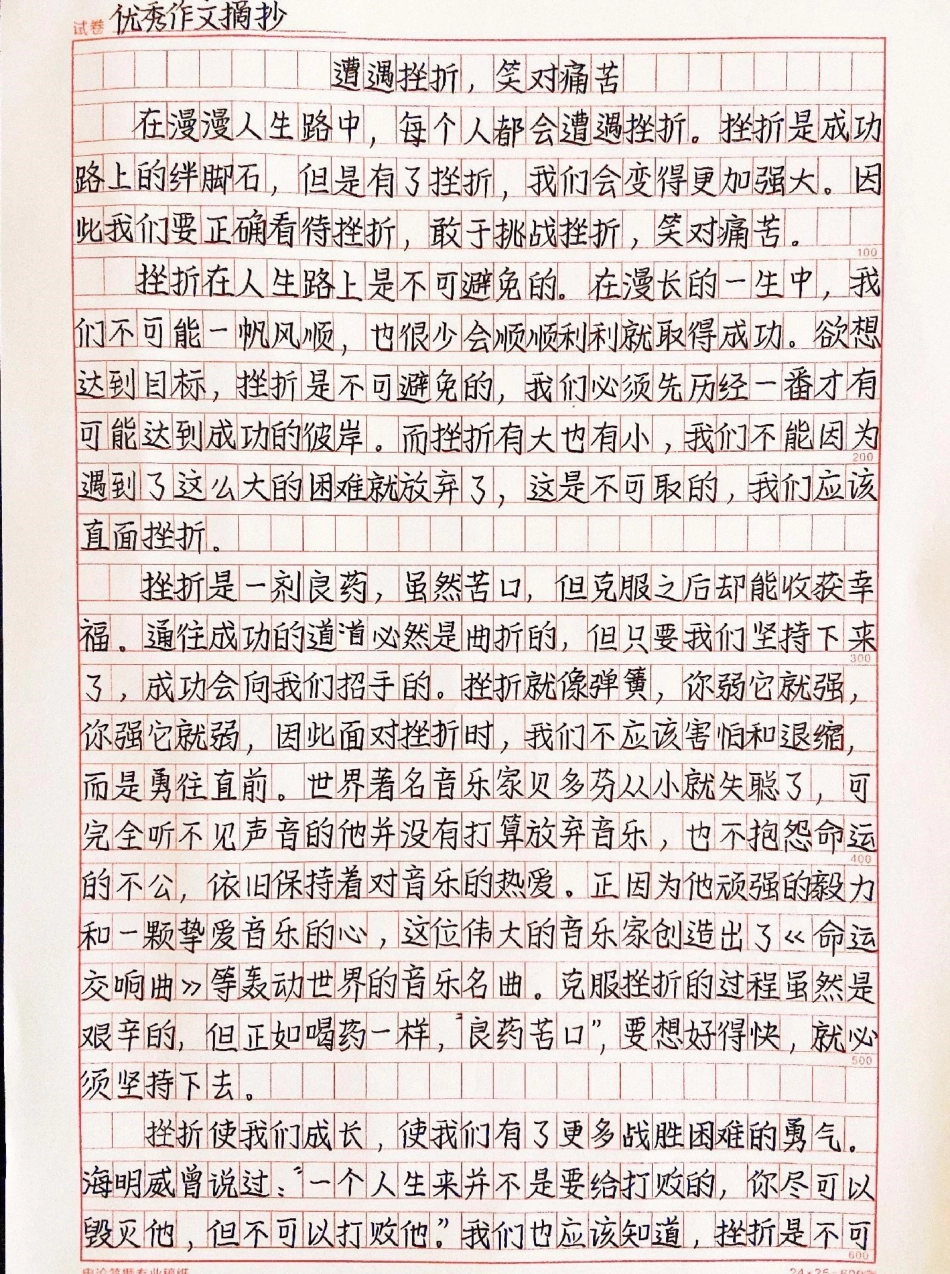 试卷 优秀作文摘抄
遭遇挫折，笑对痛苦
在漫漫人生路中，每个人都会遭遇挫折。挫折是成功
路上的绊脚石，但是有了挫折，我们会变得更加强大。因
此我们要正确看待挫折，敢于挑战挫折，笑对痛苦。
100
挫折在人生路上是不可避免的。在漫长的一生中，我
们不可能一帆风顺，也很少会顺顺利利就取得成功。欲想
达到目标，挫折是不可避免的，我们必须先历经一番才有
可能达到成功的彼岸。而挫折有大也有小，我们不能因为
200
遇到了这么大的困难就放弃了，这是不可取的，我们应该
直面挫折。
挫折是一剂良药，虽然苦口，但克服之后却能收获幸
福。通往成功的道道必然是曲折的，但只要我们坚持下来
300
了，成功会向我们招手的。挫折就像弹簧，你弱它就强，
你强它就弱，因此面对挫折时，我们不应该害怕和退缩，
而是勇往直前。世界著名音乐家贝多芬从小就失聪了，可
完全听不见声音的他并没有打算放弃音乐，也不抱怨命运
400
的不公，依旧保持着对音乐的热爱。正因为他顽强的毅力
和一颗挚爱音乐的心，这位伟大的音乐家创造出了《命运
交响曲》等轰动世界的音乐名曲。克服挫折的过程虽然是
艰辛的，但正如喝药一样，“良药苦口”，要想好得快，就必
500
须坚持下去。
挫折使我们成长，使我们有了更多战胜困难的勇气。
海明威曾说过：“一个人生来并不是要给打败的，你尽可以
毁灭他，但不可以打败他。”我们也应该知道，挫折是不可
600
24×25=600